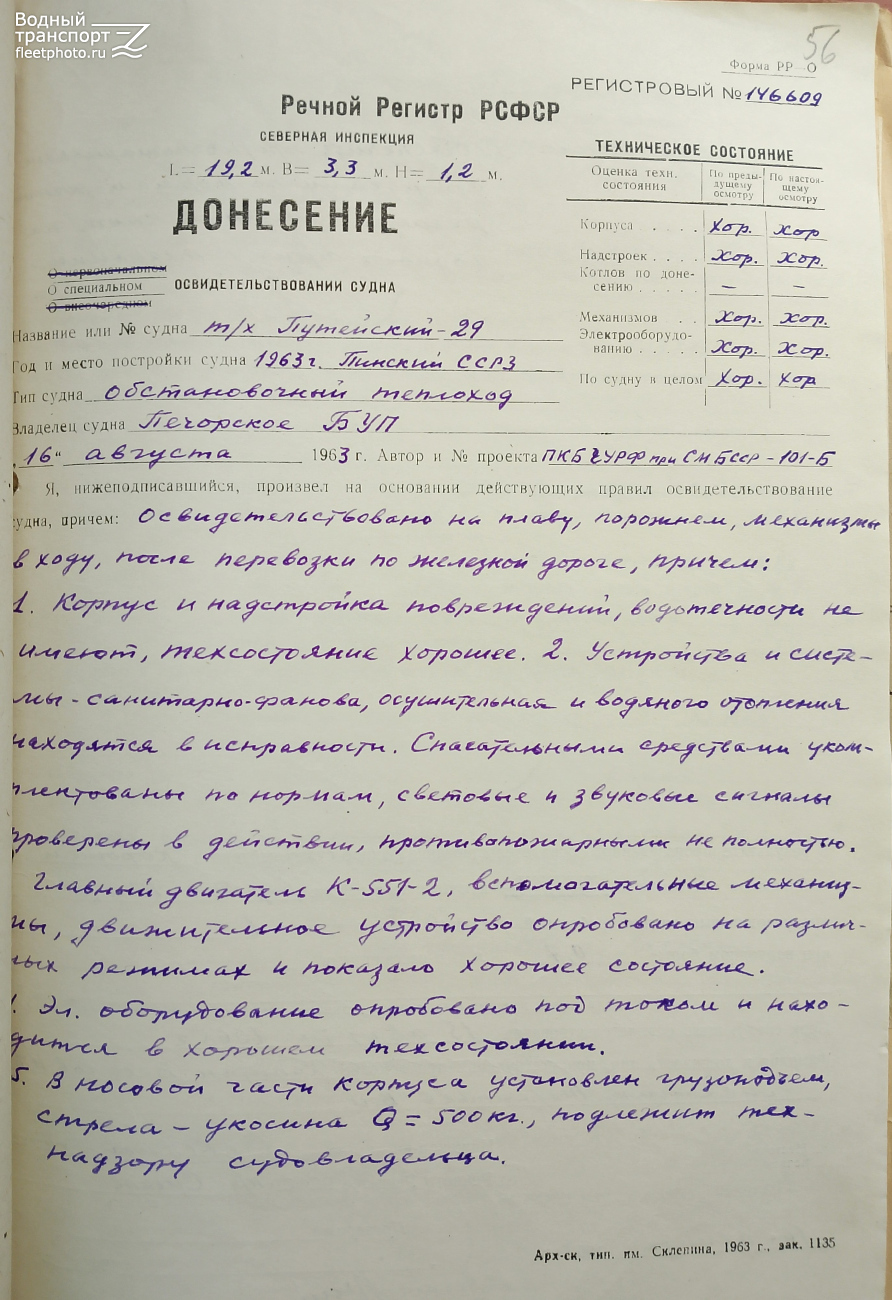 Водный
транспорт
fleetphoto.ru
56
Форма РР—О
РЕГИСТРОВЫЙ № 146609
Речной Регистр РСФСР
СЕВЕРНАЯ ИНСПЕКЦИЯ
L= 19,2 м. В= 3,3 м. Н= 1,2 м.
ДОНЕСЕНИЕ
О первоначальном
О специальном ОСВИДЕТЕЛЬСТВОВАНИИ СУДНА
О внеочередном
ТЕХНИЧЕСКОЕ СОСТОЯНИЕ
Оценка техн. состояния По преды-дущему осмотру По настоя-щему осмотру
Корпуса . . . . Хор. Хор
Надстроек . . . . Хор. Хор.
Котлов по доне-
сению . . . . . — —
Механизмов . . Хор. Хор.
Электрооборудо-
ванию . . . . . Хор. Хор.
По судну в целом Хор. Хор
Название или № судна т/х Путейский-29
Год и место постройки судна 1963г. Пинский ССРЗ
Тип судна Обстановочный теплоход
Владелец судна Печорское БУП
16" августа 1963 г. Автор и № проекта ПКБ ГУРФ при СМ БССР-101-Б
Я, нижеподписавшийся, произвел на основании действующих правил освидетельствование
судна, причем: Освидетельствовано на плаву, порожнем, механизмы
в ходу, после перевозки по железной дороге, причем:
1. Корпус и надстройка повреждений, водотечности не
имеют, техсостояние хорошее. 2. Устройства и систе-
мы - санитарно-фановая, осушительная и водяного отопления
находятся в исправности. Спасательными средствами уком-
плектованы по нормам, световые и звуковые сигналы
проверены в действии, противопожарными не полностью.
Главный двигатель К-551-2, вспомогательные механиз-
мы, движительное устройство опробовано на различ-
ных режимах и показало хорошее состояние.
Эл. оборудование опробовано под током и нахо-
дится в хорошем техсостоянии.
5. В носовой части корпуса установлен грузоподъем,
стрела - укосина Q = 500кг., подлежит тех-
надзору судовладельца.
Арх-ск, тип. им. Склепина, 1963 г., зак. 1135